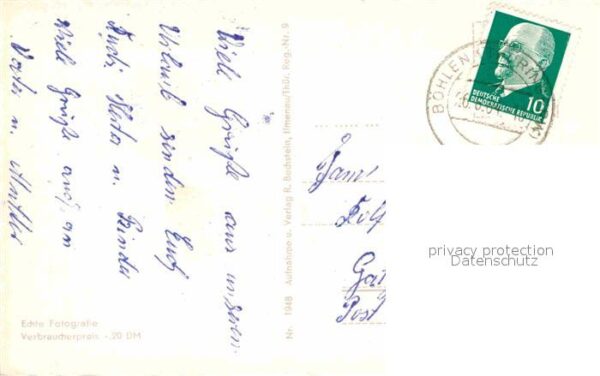 Viele Grüße aus unseren
Urlaub senden Euch
Kinder
Viele Grüße auch an
Vater u. Mutter
Echte Fotografie
Verbraucherpreis -.20 DM
Nr. 1948 Aufnahme u. Verlag R. Bechstein, Ilmenau/Thür. Reg.-Nr. 9
Fam.
Post
BÖHLEN
DEUTSCHE
DEMOKRATISCHE REPUBLIK
10
privacy protection
Datenschutz